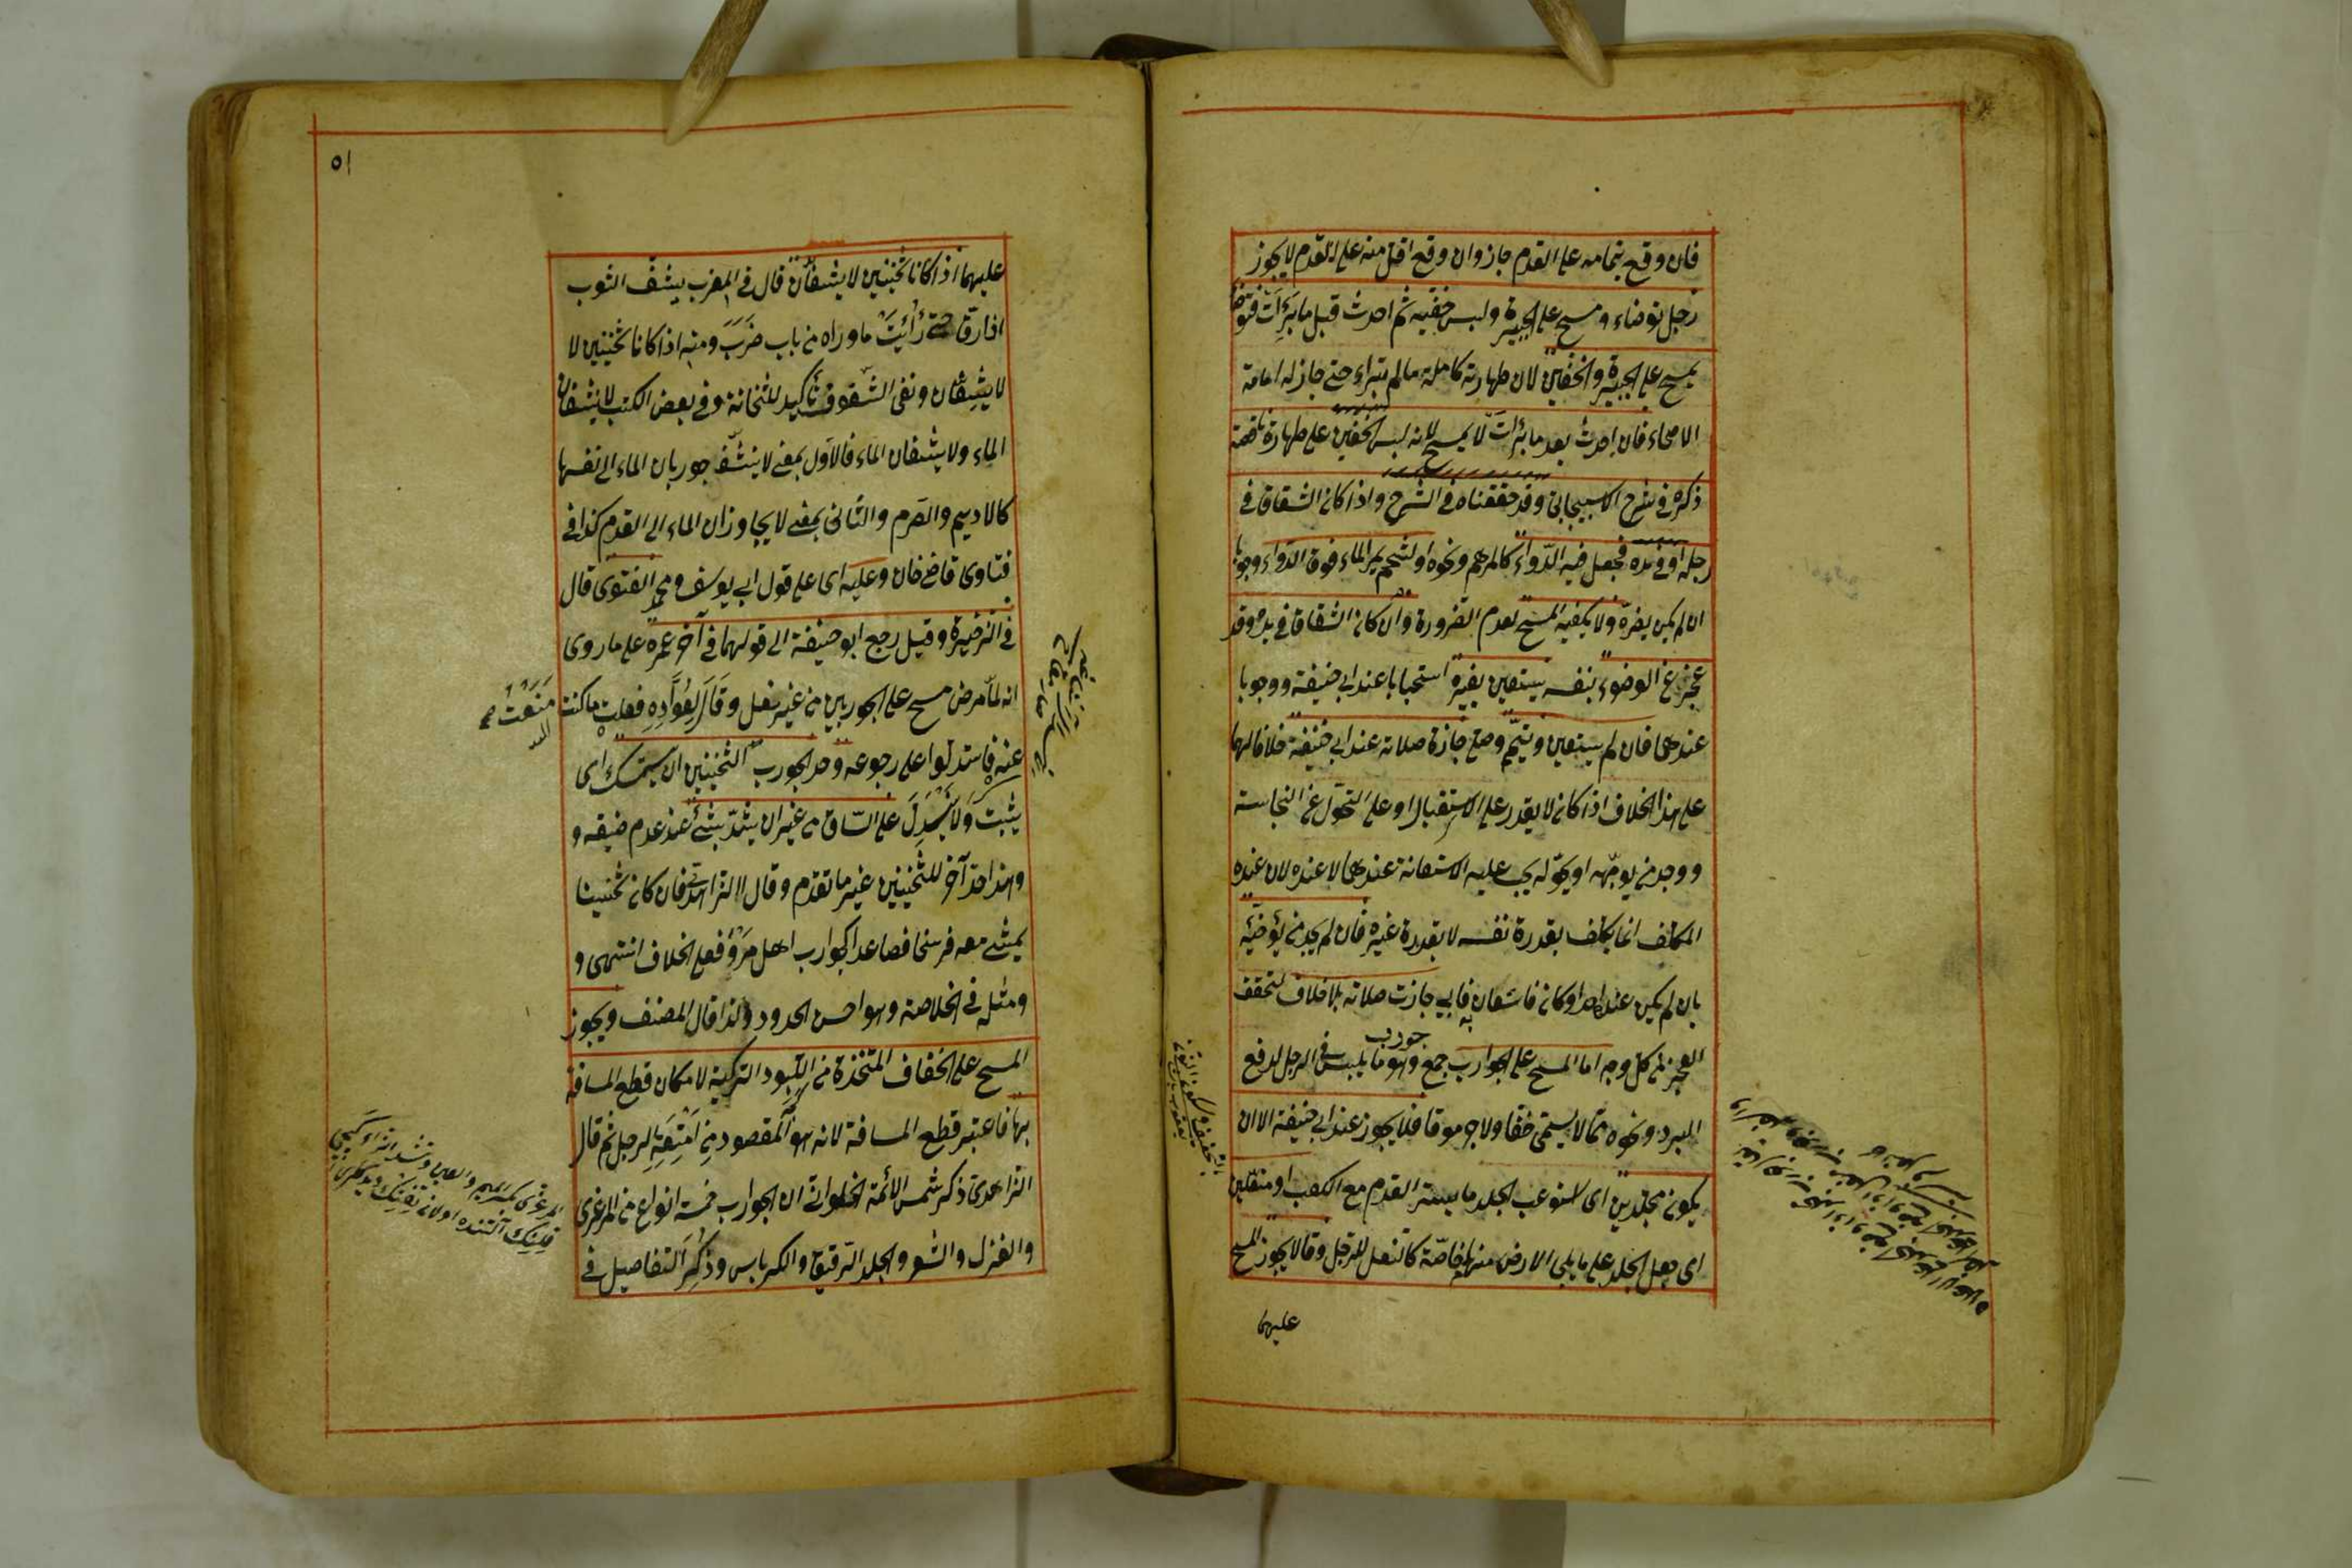 فان وقع بتمامه على القدم جاز وان وقع اقل منه على القدم لا يجوز
رجل توضاء ومسح على الجبيرة ولبس خفيه ثم احدث قبل ما برأت فتوضأ
يمسح على الجبيرة والخفين لان طهارته كاملة ما لم تبراء حتى جاز له امامة
الاصحاء فان احدث بعد ما برأت لا يمسح لانه لبس الخفين على طهارة ناقصة
ذكره في شرح الاسبيجابى وقد حققناه في الشرح واذا كان الشقاق في
رجله او في يده فجعل فيه الدواء كالمرهم ونحوه او لشحم يمر الماء فوق الدواء وجوبا
ان لم يكن يضره ولا يكفيه المسح لعدم الضرورة وان كان الشقاق في يده وقد
عجز عن الوضوء بنفسه يستعين بغيره استحبابا عند ابي حنيفة ووجوبا
عندهما فان لم يستعين وتيمم وصلى جازت صلاته عند ابي حنيفة خلافا لهما
على هذا الخلاف اذا كان لا يقدر على الاستقبال او على التحول عن النجاسة
ووجد من يوجهه او يحوله يجب عليه الاستعانة عندهما لا عنده لان عنده
المكلف انما يكلف بقدرة نفسه لا بقدرة غيره فان لم يجد من يؤضيه
بان لم يكن عنده احد او كان فاستعان به فابى جازت صلاته بلا خلاف لتحقق
العجز من كل وجه اما المسح على الجوارب جمع جورب وهو ما يلبس في الرجل لدفع
البرد ونحوه مما لا يسمى خفا ولا جرموقا فلا يجوز عند ابي حنيفة الا ان
يكون مجلدين اى استوعب الجلد ما يستر القدم مع الكعب او منعلين
اى جعل الجلد على ما يلي الارض منهما خاصة كالنعل للرجل وقالا يجوز المسح
عليهما
٥١
عليهما اذا كانا ثخينين لا يشفان قال في المغرب يشف الثوب
اذا رق حتى رأيت ما وراه من باب ضرب ومنه اذا كانا ثخينين لا
لا يشفان ونفى الشفوف تأكيد للثخانة وفي بعض الكتب لا ينشفان
الماء ولا يشفان الماء فالاول بمعنى لا ينشف جوربان الماء الى نفسها
كالاديم والصرم والثانى بمعنى لا يجاوزان الماء الى القدم كذا في
فتاوى قاضي خان وعليه اى على قول ابي يوسف ومحمد الفتوى قال
في الذخيرة وقيل رجع ابو حنيفة الى قولهما في آخر عمره على ما روى
انه لما مرض مسح على الجوربين من غير نعل وقال لعواده فعلت ما كنت
منعت
عنه فاستدلوا على رجوعه وحد الجورب الثخينين ان يستمسك اى
يثبت ولا ينسدل على الساق من غير ان يشد بشئ عند عدم ضيقه و
وهذا حد آخر للثخينين غير ما تقدم وقال الزاهدى فان كان ثخينا
يمشي معه فرسخا فصاعدا كجوارب اهل مرو فعلى الخلاف انتهى و
ومثله في الخلاصة وهو احسن الحدود ولذا قال المصنف ويجوز
المسح على الخفاف المتخذة من اللبود التركية لامكان قطع المسافة
بها فاعتبر قطع المسافة لانه هو المقصود من امتعة الرجل ثم قال
الزاهدى ذكر شمس الأئمة الحلوانى ان الجوارب خمسة انواع من المرعزى
والغزل والشعر والجلد الرقيق والكرباس وذكر التفاصيل في